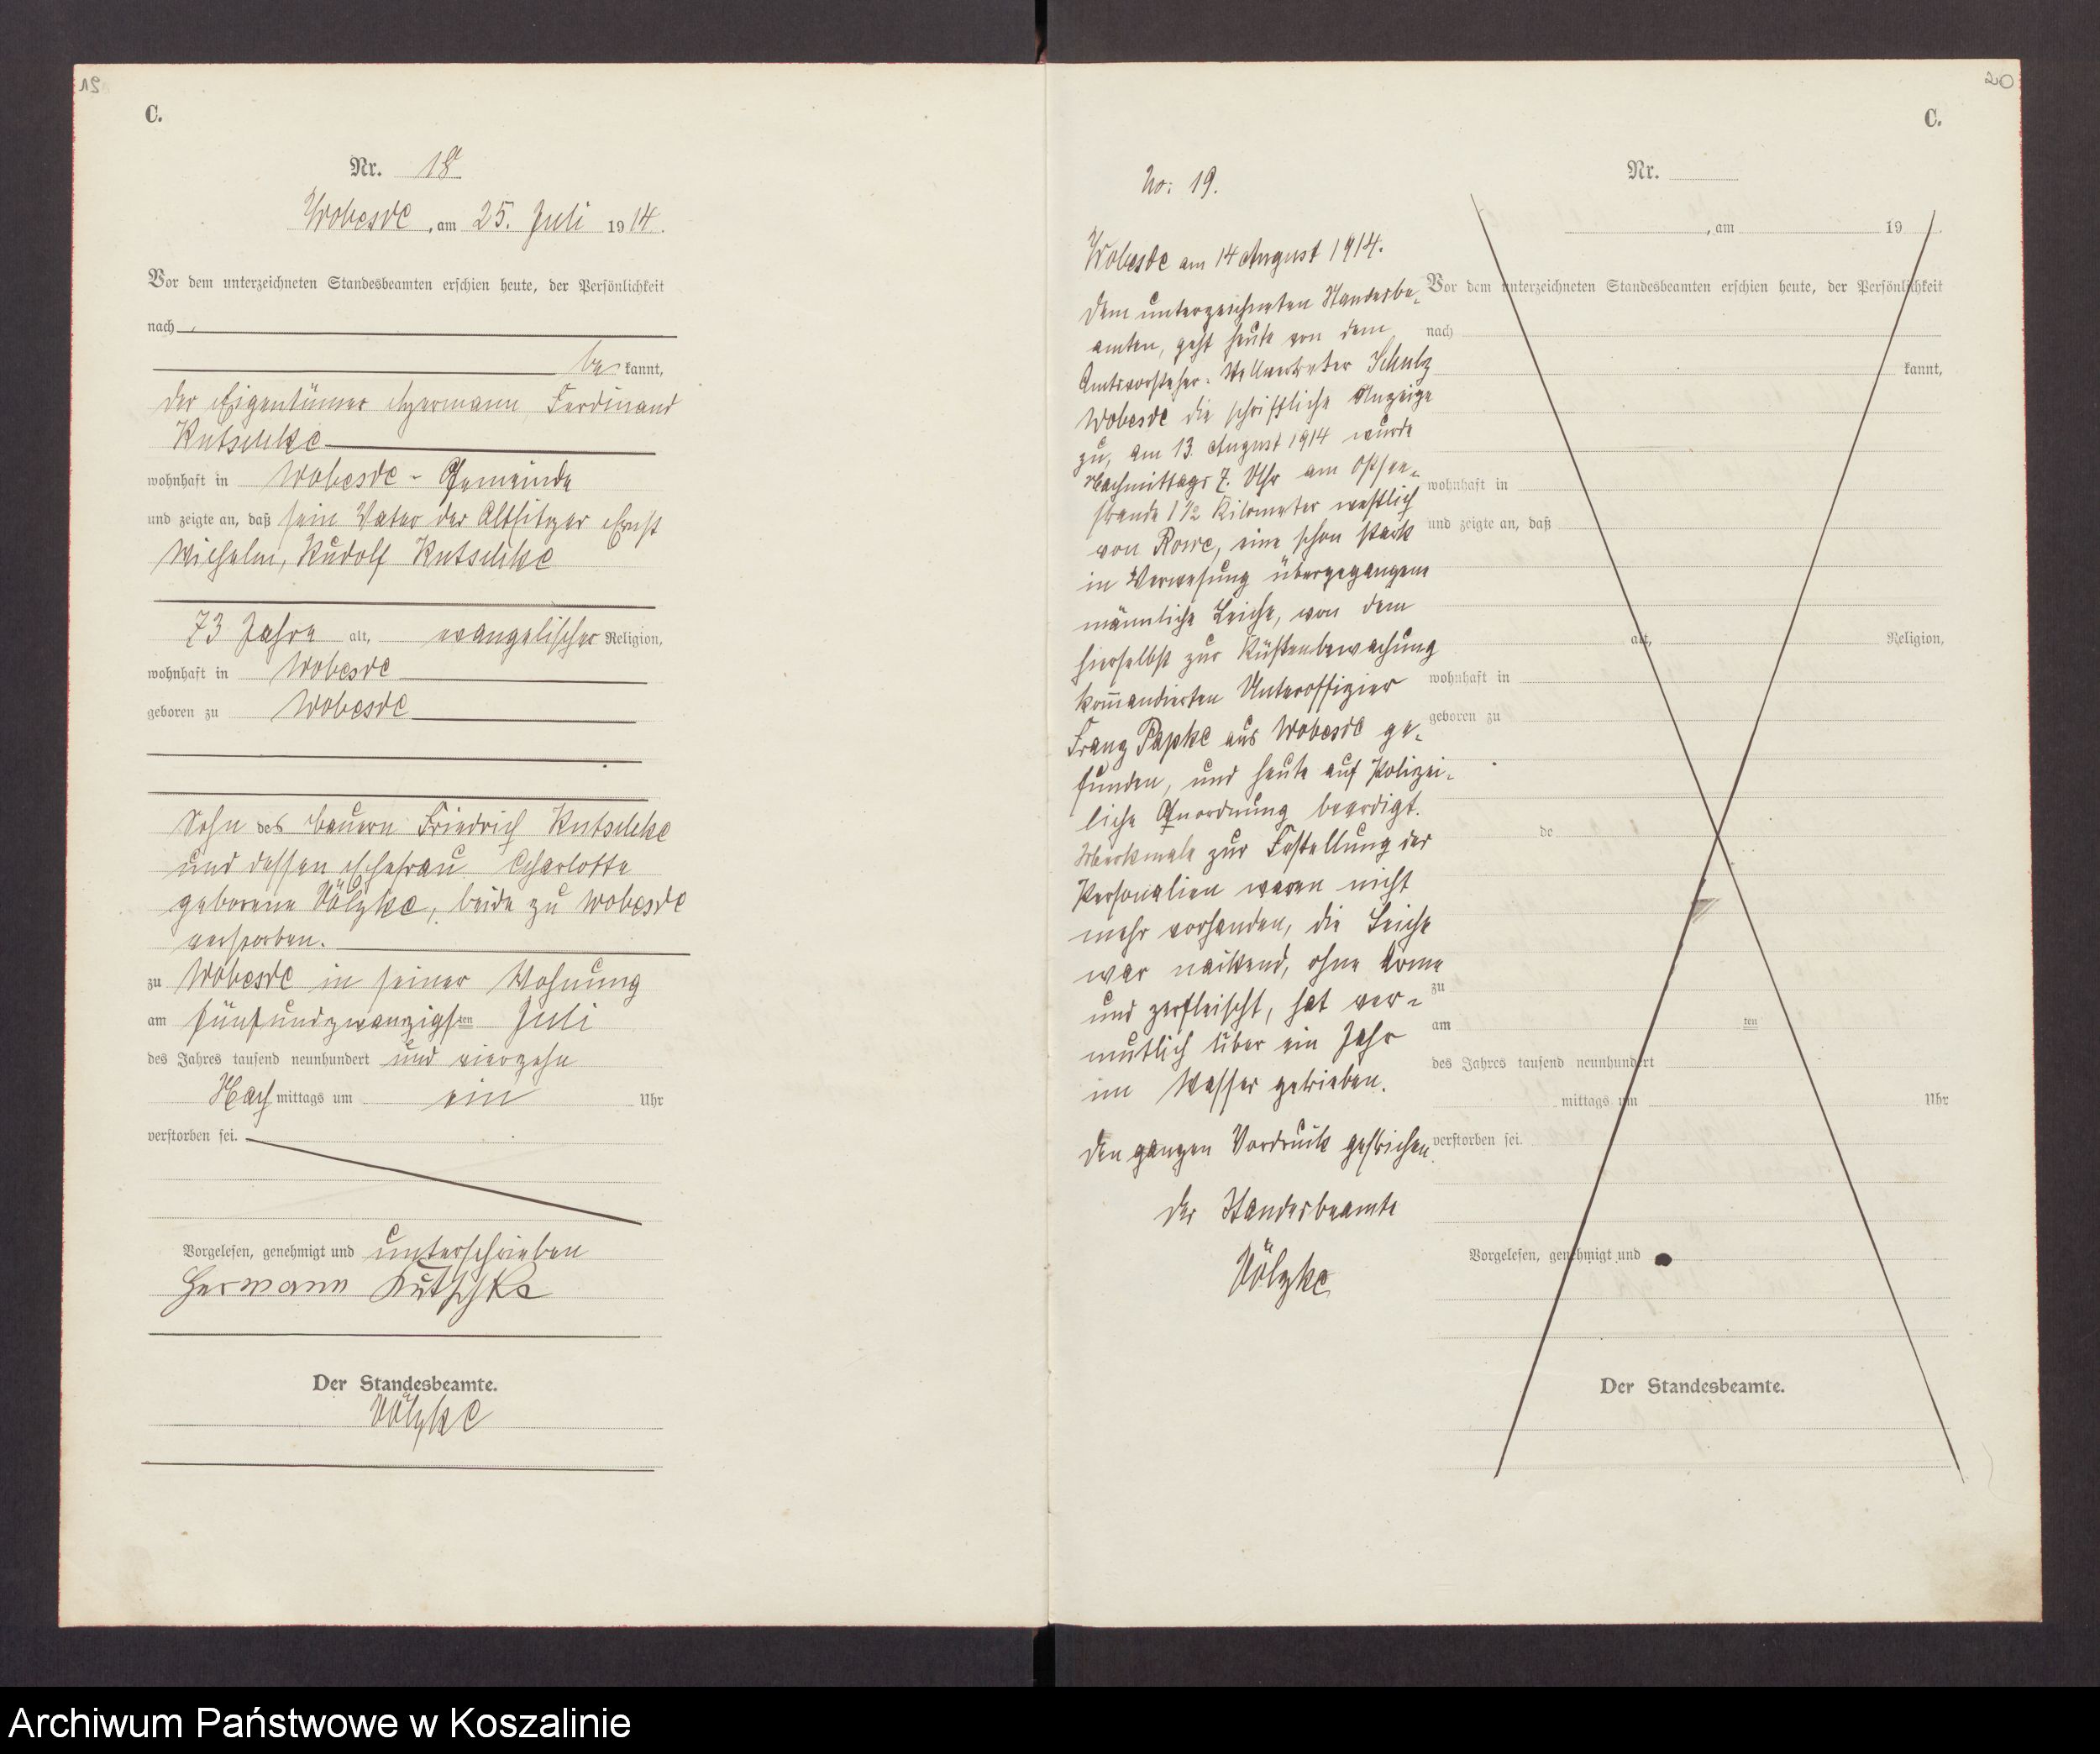 19
C.
Nr. 18
Wobesde, am 25. Juli 1914.
Vor dem unterzeichneten Standesbeamten erschien heute, der Persönlichkeit
nach
be kannt,
der Eigentümer Hermann Ferdinand
Kutschke
wohnhaft in Wobesde - Gemeinde
und zeigte an, daß sein Vater der Altsitzer Ernst
Wilhelm, Rudolf Kutschke
73 Jahre alt, evangelischer Religion,
wohnhaft in Wobesde
geboren zu Wobesde
Sohn des Bauern Friedrich Kutschke
und dessen Ehefrau Charlotte
geborene Völzke, beide zu Wobesde
verstorben.
zu Wobesde in seiner Wohnung
am fünfundzwanzigsten Juli
des Jahres tausend neunhundert und vierzehn
Nach mittags um ein Uhr
verstorben sei.
Vorgelesen, genehmigt und unterschrieben
Hermann Kutschke
Der Standesbeamte.
Völzke
20
C.
No: 19.
Wobesde am 14 August 1914.
Dem unterzeichneten Standesbe-
amten, geht heute von dem
Amtsvorsteher-Stellvertreter Schulz
Wobesde die schriftliche Anzeige
zu, am 13. August 1914 wurde
Nachmittags 7. Uhr am Ostsee-
strande 1 1/2 Kilometer westlich
von Rowe, eine schon stark
in Verwesung übergegangene
männliche Leiche, von dem
hierselbst zur Küstenbewachung
kom̅andierten Unteroffizier
Franz Papke aus Wobesde ge-
funden, und heute auf Polizei-
liche Anordnung beerdigt.
Merkmale zur Festellung der
Personalien waren nicht
mehr vorhanden, die Leiche
war nackend, ohne Arme
und zerfleischt, hat ver-
mutlich über ein Jahr
im Wasser getrieben.
Den ganzen Vordruck gestrichen.
Der Standesbeamte
Völzke
Nr.
, am 19 .
Vor dem unterzeichneten Standesbeamten erschien heute, der Persönlichkeit
nach
kannt,
wohnhaft in
und zeigte an, daß
alt, Religion,
wohnhaft in
geboren zu
de
zu
am ten
des Jahres tausend neunhundert
mittags um Uhr
verstorben sei.
Vorgelesen, genehmigt und
Der Standesbeamte.
Archiwum Państwowe w Koszalinie